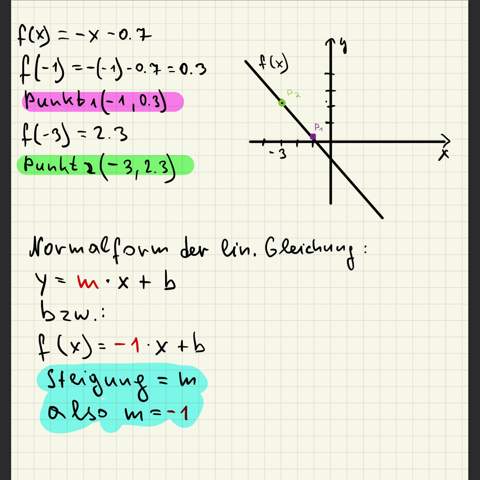 f(x) = -x - 0.7
f(-1) = -(-1) - 0.7 = 0.3
Punkt 1 (-1, 0.3)
f(-3) = 2.3
Punkt 2 (-3, 2.3)
y
f(x)
P2
P1
-3
x
Normalform der lin. Gleichung:
y = m · x + b
bzw.:
f(x) = -1 · x + b
Steigung = m
also m = -1